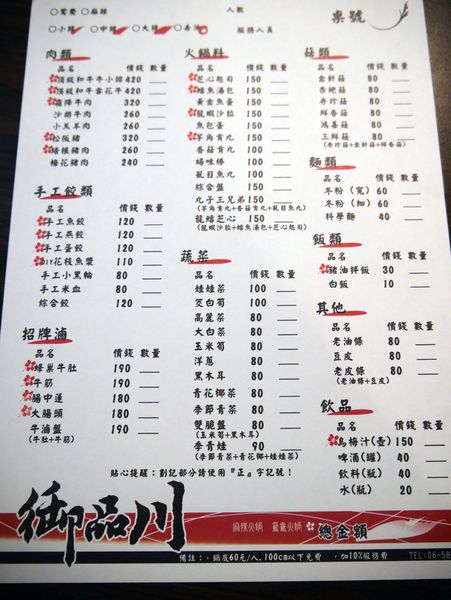 ○鴛鴦 ○麻辣
人數
桌號
○小辣 ○中辣 ○大辣 ○去油
服務人員
肉類
品名 價錢 數量
頂級和牛牛小排 420
頂級和牛雪花牛 420
霜降牛肉 320
沙朗牛肉 260
小羔羊肉 260
松阪豬 320
培根豬肉 260
梅花豬肉 240
手工餃類
品名 價錢 數量
手工魚餃 120
手工燕餃 120
手工蛋餃 120
DIY花枝魚漿 110
手工小黑輪 80
手工米血 80
綜合餃 120
招牌滷
品名 價錢 數量
蜂巢牛肚 190
牛筋 190
腸中蓮 180
大腸頭 180
牛滷盤 190
(牛肚+牛筋)
火鍋料
品名 價錢 數量
芝心起司 150
鱈魚湯包 150
黃金魚蛋 150
龍蝦沙拉 150
魚包蛋 150
芋角貢丸 150
香菇貢丸 150
蟳味棒 100
虱目魚丸 100
綜合盤 150
丸子三兄弟 150
(芋角貢丸+香菇貢丸+虱目魚丸)
龍鱈芝心 150
(龍蝦沙拉+鱈魚湯包+芝心起司)
蔬菜
品名 價錢 數量
娃娃菜 100
茭白筍 100
高麗菜 80
大白菜 80
玉米筍 80
洋蔥 80
黑木耳 80
青花椰菜 80
季節青菜 80
雙脆盤 80
(玉米筍+黑木耳)
季青娃 90
(季節青菜+青花椰+娃娃菜)
菇類
品名 價錢 數量
金針菇 80
杏鮑菇 80
秀珍菇 80
鮮香菇 80
鴻喜菇 80
三鮮菇 80
(秀珍菇+金針菇+鮮香菇)
麵類
品名 價錢 數量
冬粉(寬) 60
冬粉(細) 60
科學麵 40
飯類
品名 價錢 數量
豬油拌飯 30
白飯 10
其他
品名 價錢 數量
老油條 80
豆皮 80
老皮條 80
(老油條+豆皮)
飲品
品名 價錢 數量
烏梅汁(壺) 150
啤酒(罐) 40
飲料(瓶) 40
水(瓶) 20
貼心提醒：劃記部分請使用『正』字記號！
御品川
麻辣火鍋 鴛鴦火鍋
總金額
備註：‧鍋底60元/人,100cm以下免費 ‧加10%服務費
TEL:06-58